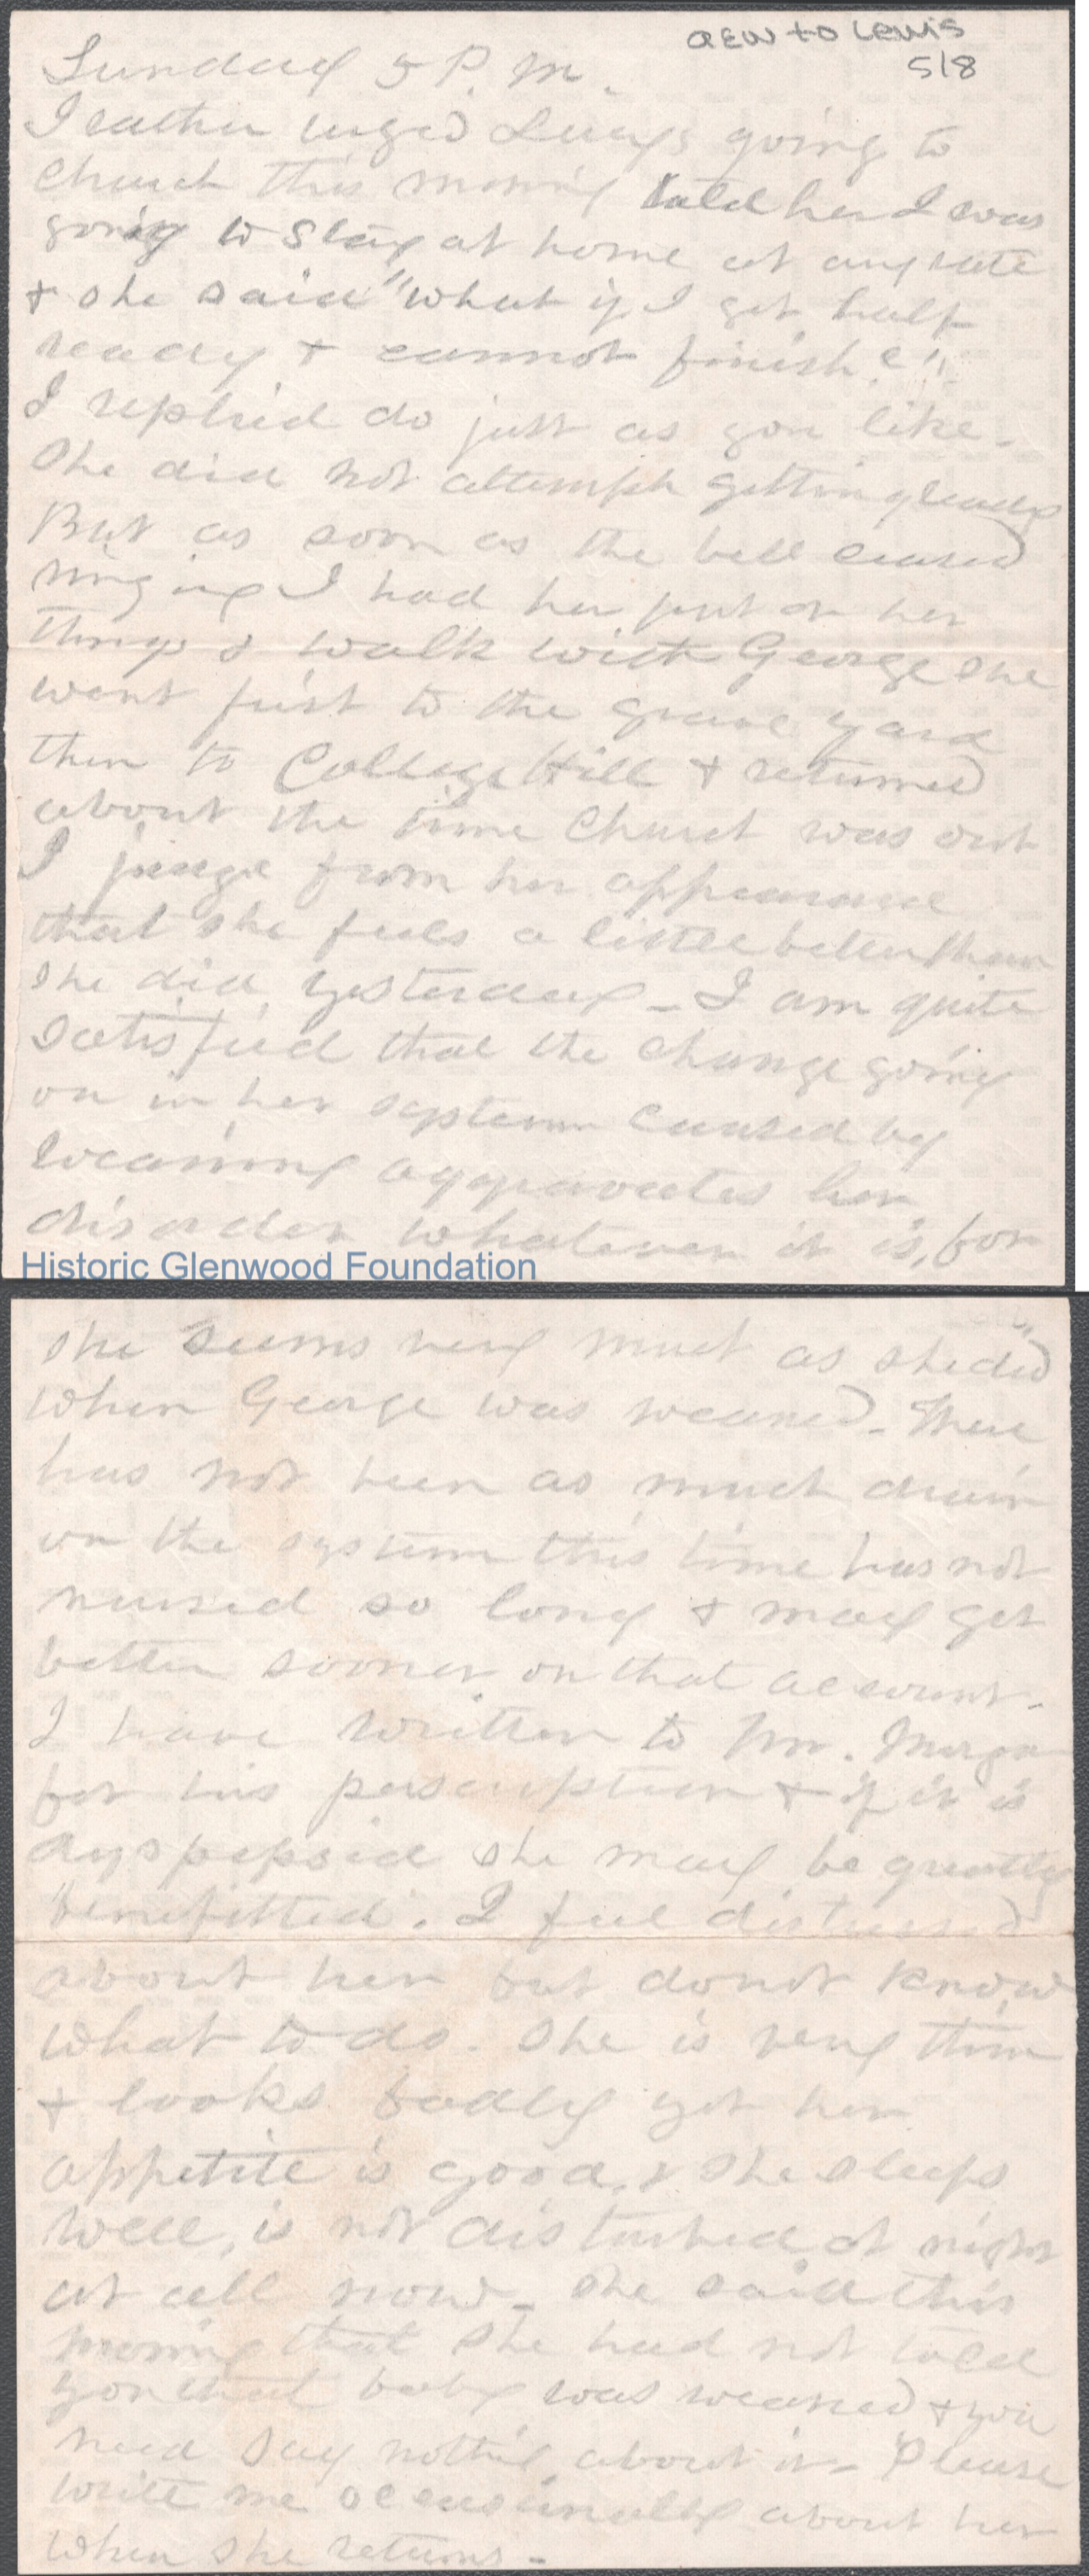 AEW to Lewis
518
Sunday 5 P. M.
I rather urged Lucy's going to
Church this morning told her I was
going to stay at home at any rate
& she said "what if I get half
ready & cannot finish?"
I replied do just as you like.
She did not attempt getting ready
But as soon as the bell ceased
ringing I had her put on her
things & walk with George she
went first to the grave yard
then to College Hill & returned
about the time Church was out
I judge from her appearance
that she feels a little better than
she did yesterday - I am quite
satisfied that the change going
on in her system caused by
weaning aggravates her
disorder whatever it is, for
Historic Glenwood Foundation
she seems very much as she did
when George was weaned. There
has not been as much drain
on the system this time has not
nursed so long & may get
better sooner on that account.
I have written to Mr. Morgan
for his perscuption & if it is
dyspepsia she may be greatly
benefitted. I feel distressed
about her but do not know
what to do. She is very thin
& looks badly yet her
appetite is good, & she sleeps
well, is not disturbed at night
at all now - She said this
morning that she had not told
you that baby was weaned & you
need say nothing about it - Please
write me occasionally about her
when she returns -